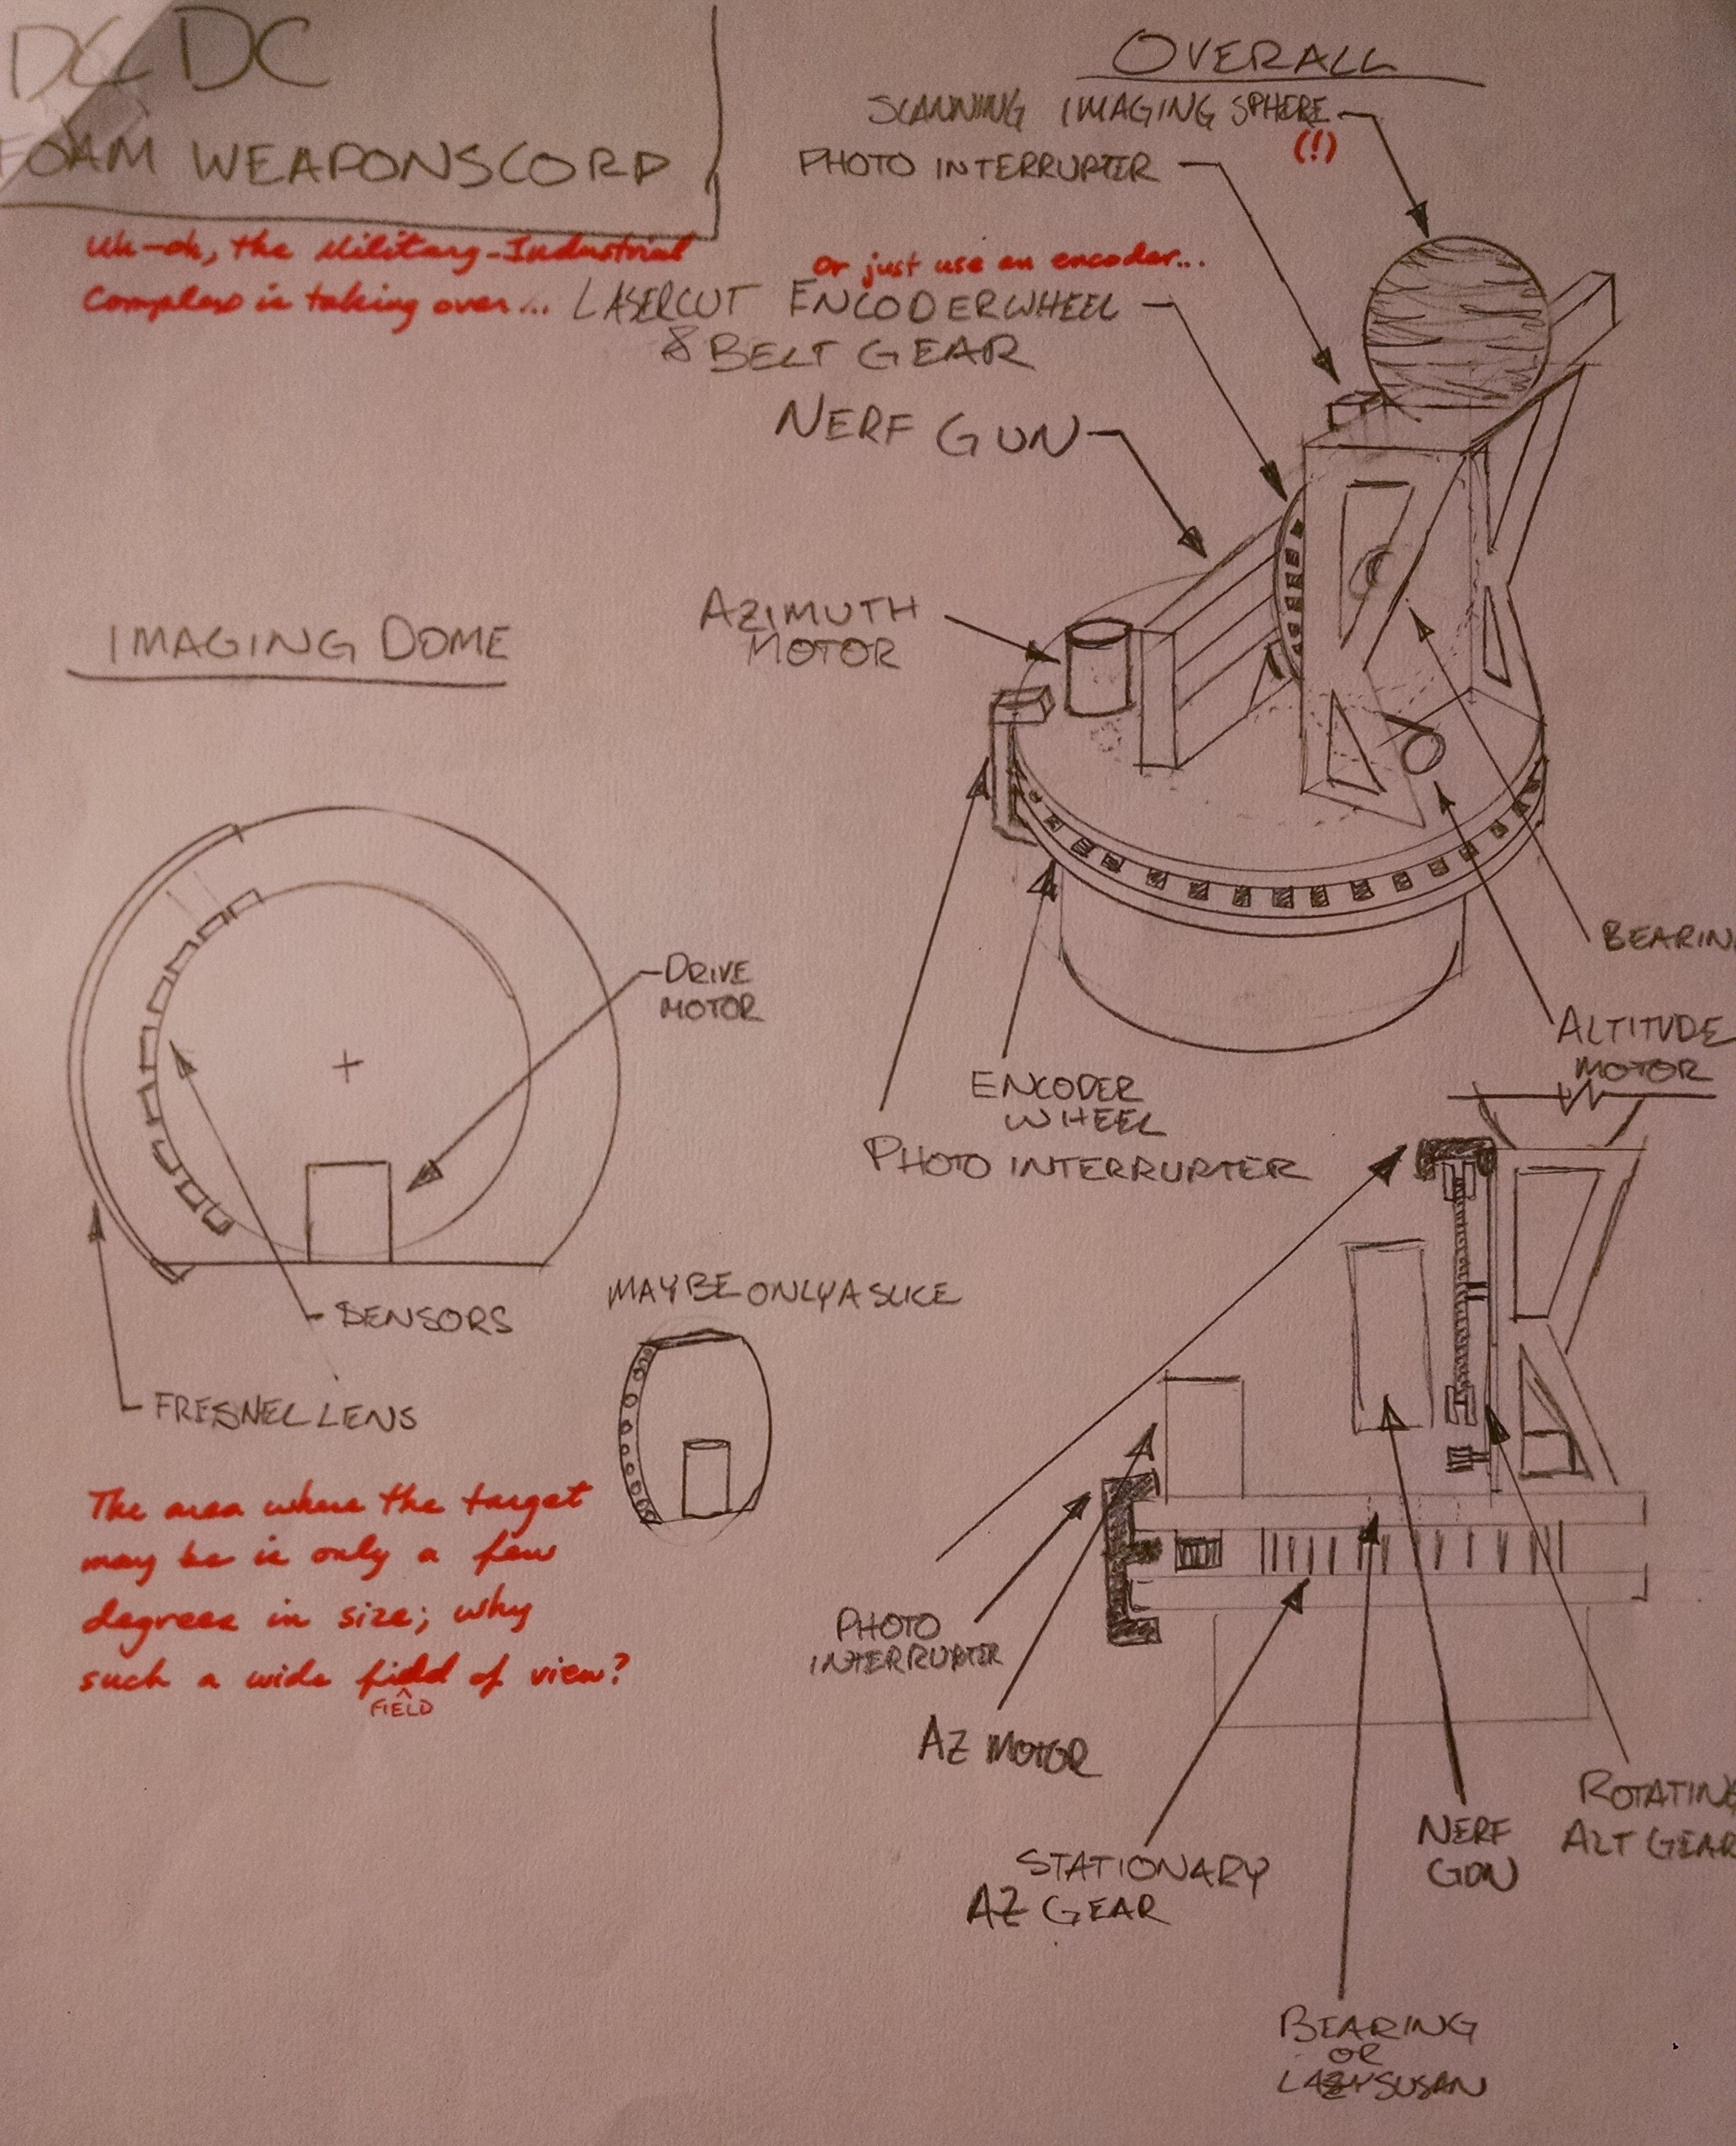 DC DC
FOAM WEAPONSCORP
Uh-oh, the Military-Industrial
Complex is taking over...
OVERALL
SCANNING IMAGING SPHERE
(!)
PHOTO INTERRUPTER
Or just use an encoder...
LASERCUT ENCODERWHEEL
& BELT GEAR
NERF GUN
AZIMUTH
MOTOR
BEARIN
ALTITUDE
MOTOR
ENCODER
WHEEL
PHOTO INTERRUPTER
IMAGING DOME
DRIVE
MOTOR
SENSORS
FRESNEL LENS
MAYBE ONLY A SLICE
The area where the target
may be is only a few
degrees in size; why
such a wide field of view?
FIELD
PHOTO
INTERRUPTER
AZ MOTOR
STATIONARY
AZ GEAR
NERF
GUN
ROTATING
ALT GEAR
BEARING
OR
LAZYSUSAN